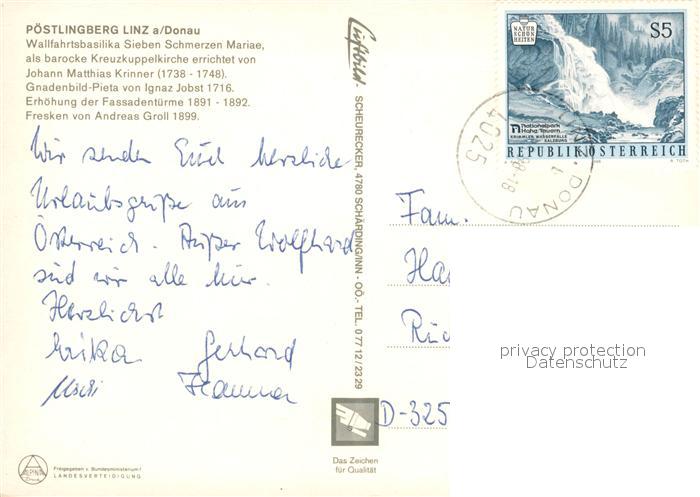 PÖSTLINGBERG LINZ a/Donau
Wallfahrtsbasilika Sieben Schmerzen Mariae,
als barocke Kreuzkuppelkirche errichtet von
Johann Matthias Krinner (1738 - 1748).
Gnadenbild-Pieta von Ignaz Jobst 1716.
Erhöhung der Fassadentürme 1891 - 1892.
Fresken von Andreas Groll 1899.
Wir senden Euch herzliche
Urlaubsgrüße aus
Österreich. Außer Wolfhard
sind wir alle hier.
Herzlichst
Erika Gerhard
Uschi Hanna
Luftbild - SCHEURECKER, 4780 SCHÄRDING/INN - OÖ.- TEL. 0 77 12 / 23 29
NATUR
SCHÖN
HEITEN
S5
Nationalpark
Hohe Tauern
KRIMMLER WASSERFÄLLE
SALZBURG
REPUBLIK ÖSTERREICH
4025
DONAU
-18
Fam.
Ha
Rüd
D-325
privacy protection
Datenschutz
Das Zeichen
für Qualität
ALPINA
Druck
Freigegeben v. Bundesministerium f.
LANDESVERTEIDIGUNG